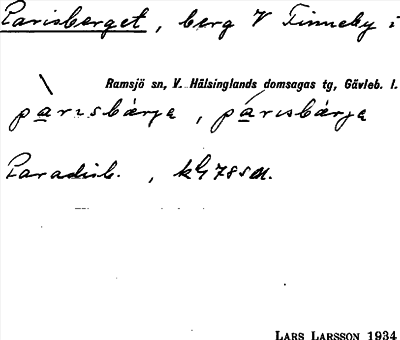 Parisberget, berg V Finneby i
Ramsjö sn, V. Hälsinglands domsagas tg, Gävleb. l.
parisbærja, parisbærja
Paradisb., 
LARS LARSSON 1934